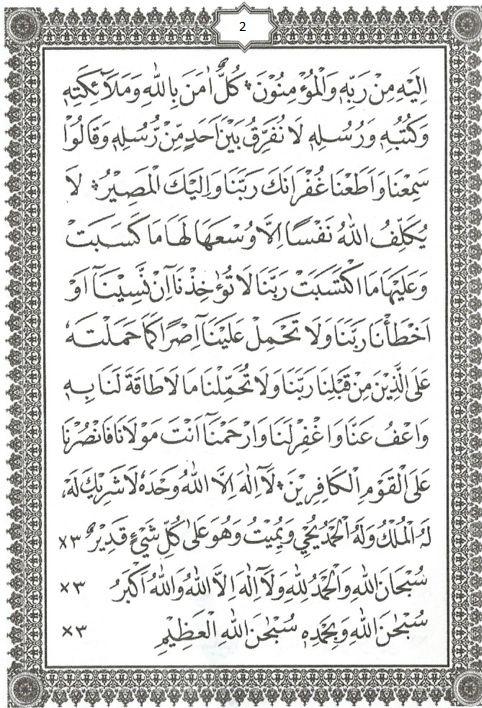 2
اِلَيْهِ مِنْ رَبِّهٖ وَالْمُؤْمِنُوْنَ ۞ كُلٌّ اٰمَنَ بِاللّٰهِ وَمَلَآئِكَتِهٖ
وَكُتُبِهٖ وَرُسُلِهٖ لَا نُفَرِّقُ بَيْنَ اَحَدٍ مِّنْ رُّسُلِهٖ وَقَالُوْا
سَمِعْنَا وَاَطَعْنَا غُفْرَانَكَ رَبَّنَا وَاِلَيْكَ الْمَصِيْرُ ۞ لَا
يُكَلِّفُ اللّٰهُ نَفْسًا اِلَّا وُسْعَهَا لَهَا مَا كَسَبَتْ
وَعَلَيْهَا مَا اكْتَسَبَتْ رَبَّنَا لَا تُؤَاخِذْنَا اِنْ نَّسِيْنَآ اَوْ
اَخْطَأْنَا رَبَّنَا وَلَا تَحْمِلْ عَلَيْنَآ اِصْرًا كَمَا حَمَلْتَهٗ
عَلَى الَّذِيْنَ مِنْ قَبْلِنَا رَبَّنَا وَلَا تُحَمِّلْنَا مَا لَا طَاقَةَ لَنَا بِهٖ
وَاعْفُ عَنَّا وَاغْفِرْلَنَا وَارْحَمْنَآ اَنْتَ مَوْلَانَا فَانْصُرْنَا
عَلَى الْقَوْمِ الْكَافِرِيْنَ ۞ لَآ اِلٰهَ اِلَّا اللّٰهُ وَحْدَهٗ لَا شَرِيْكَ لَهٗ
لَهُ الْمُلْكُ وَلَهُ الْحَمْدُ يُحْيِيْ وَيُمِيْتُ وَهُوَ عَلٰى كُلِّ شَيْءٍ قَدِيْرٌ ×٣
سُبْحَانَ اللّٰهِ وَالْحَمْدُ لِلّٰهِ وَلَآ اِلٰهَ اِلَّا اللّٰهُ وَاللّٰهُ اَكْبَرُ ×٣
سُبْحٰنَ اللّٰهِ وَبِحَمْدِهٖ سُبْحٰنَ اللّٰهِ الْعَظِيْمِ ×٣